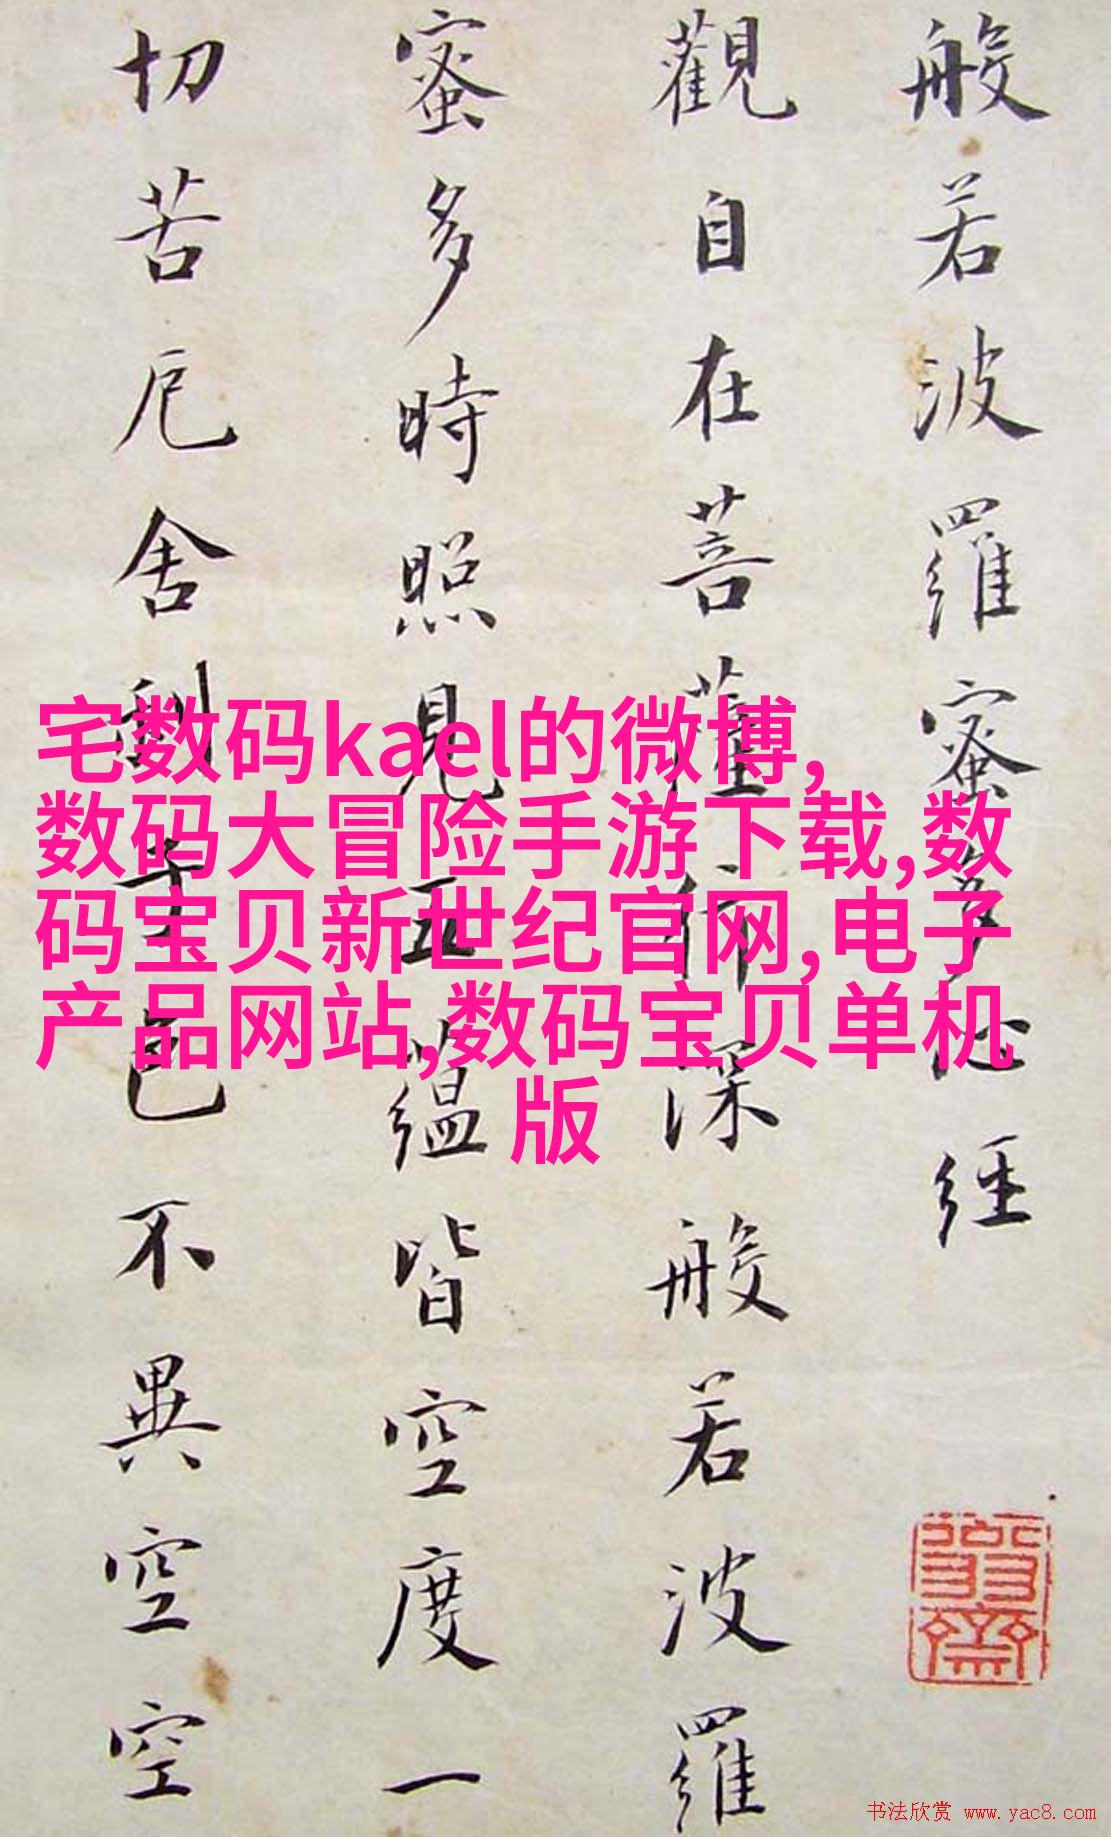 般若波羅蜜多心經
觀自在菩薩行深般若波羅
蜜多時照見五蘊皆空度一
切苦厄舍利子色不異空空
宅数码kael的微博,
数码大冒险手游下载,数
码宝贝新世纪官网,电子
产品网站,数码宝贝单机
版
书法欣赏 www.yac8.com